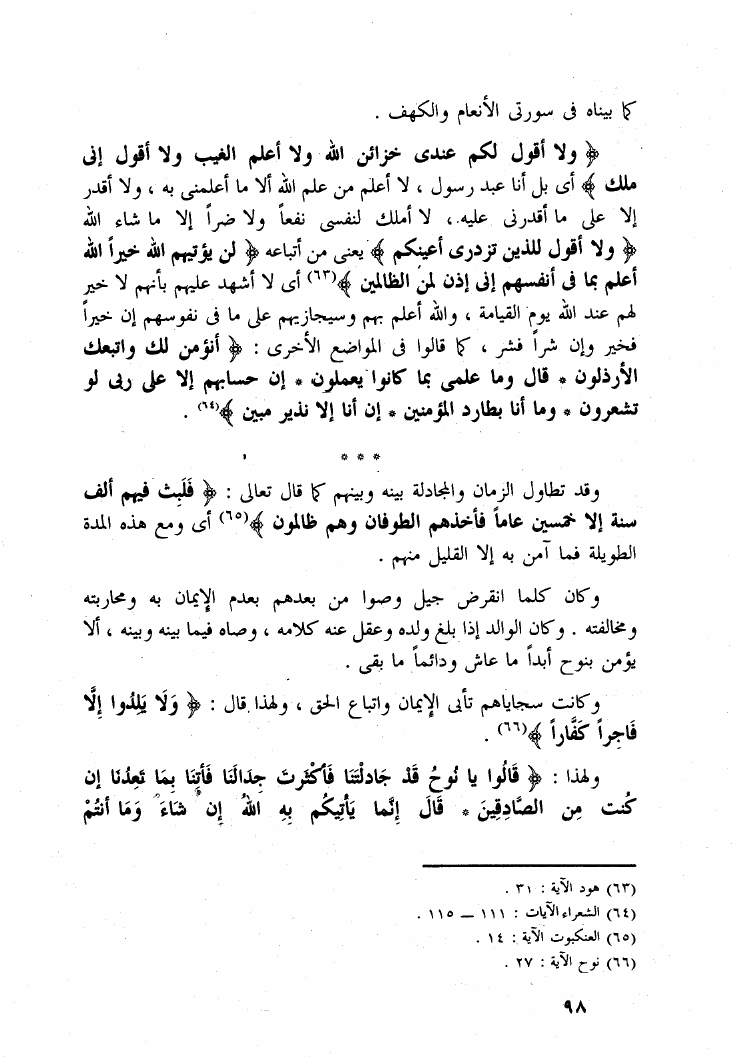 كما بيناه فى سورتى الأنعام والكهف .
﴿ ولا أقول لكم عندى خزائن الله ولا أعلم الغيب ولا أقول إنى
ملك ﴾ أى بل أنا عبد رسول ، لا أعلم من علم الله ألا ما أعلمنى به ، ولا أقدر
إلا على ما أقدرنى عليه ، لا أملك لنفسى نفعاً ولا ضراً إلا ما شاء الله
﴿ ولا أقول للذين تزدرى أعينكم ﴾ يعنى من أتباعه ﴿ لن يؤتيهم الله خيراً الله
أعلم بما فى أنفسهم إنى إذن لمن الظالمين ﴾(٦٣) أى لا أشهد عليهم بأنهم لا خير
لهم عند الله يوم القيامة ، والله أعلم بهم وسيجازيهم على ما فى نفوسهم إن خيراً
فخير وإن شراً فشر ، كما قالوا فى المواضع الأخرى : ﴿ أنؤمن لك واتبعك
الأرذلون * قال وما علمى بما كانوا يعملون * إن حسابهم إلا على ربى لو
تشعرون * وما أنا بطارد المؤمنين * إن أنا إلا نذير مبين ﴾(٦٤) .
* * *
وقد تطاول الزمان والمجادلة بينه وبينهم كما قال تعالى : ﴿ فَلَبِثَ فيهم ألف
سنة إلا خمسين عاماً فأخذهم الطوفان وهم ظالمون ﴾(٦٥) أى ومع هذه المدة
الطويلة فما آمن به إلا القليل منهم .
وكان كلما انقرض جيل وصوا من بعدهم بعدم الإيمان به ومحاربته
ومخالفته . وكان الوالد إذا بلغ ولده وعقل عنه كلامه ، وصاه فيما بينه وبينه ، ألا
يؤمن بنوح أبداً ما عاش ودائماً ما بقى .
وكانت سجاياهم تأبى الإيمان واتباع الحق ، ولهذا قال : ﴿ وَلَا يَلِدُوا إِلَّا
فَاجِراً كَفَّاراً ﴾(٦٦) .
ولهذا : ﴿ قَالُوا يا نُوحُ قَدْ جَادلْتَنَا فَأكْثَرتَ جِدَالَنَا فَأتِنَا بِمَا تَعِدُنَا إن
كُنت مِن الصَّادِقِينَ * قَالَ إنَّما يَأتِيكُم بِهِ اللهُ إن شَاءَ وَمَا أنتُمْ
(٦٣) هود الآية : ٣١ .
(٦٤) الشعراء الآيات : ١١١ — ١١٥ .
(٦٥) العنكبوت الآية : ١٤ .
(٦٦) نوح الآية : ٢٧ .
٩٨